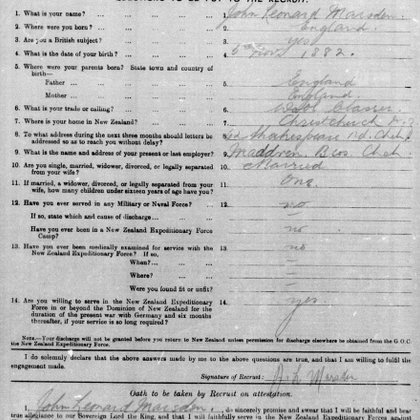 QUESTIONS TO BE PUT TO THE RECRUIT.
1. What is your name? ... ... ... 1. John Leonard Marsden
2. Where were you born? ... ... ... 2. England
3. Are you a British subject? ... ... ... 3. yes
4. What is the date of your birth? ... ... ... 4. Nov 1882.
5. Where were your parents born? State town and country
of birth—
Father ... ... ... 5. England
Mother ... ... ... England
6. What is your trade or calling? ... ... ... 6. Wool Classer
7. Where is your home in New Zealand? ... ... 7. Christchurch N.Z
8. To what address during the next three months should letters
be addressed so as to reach you without delay? ... 8. Shakespeare Rd. Chch
9. What is the name and address of your present or last employer? 9. Maddren Bros Chch
10. Are you single, married, widower, divorced, or legally separated
from your wife? ... ... ... 10. Married
11. If married, a widower, divorced, or legally separated from your
wife, how many children under sixteen years of age have you? 11. One
12. Have you ever served in any Military or Naval Force? ... 12. no
If so, state which and cause of discharge... ... —
Have you ever been in a New Zealand Expeditionary Force
Camp? ... ... ... no
13. Have you ever been medically examined for service with the
New Zealand Expeditionary Force? If so, 13. no
When? ... ... —
Where? ... ... —
Were you found fit or unfit? ... —
14. Are you willing to serve in the New Zealand Expeditionary
Force in or beyond the Dominion of New Zealand for the
duration of the present war with Germany and six months
thereafter, if your service is so long required? ... 14. yes.
NOTE.—Your discharge will not be granted before you return to New Zealand unless permission for discharge elsewhere be obtained from the G.O.C.
the New Zealand Expeditionary Force.
I do solemnly declare that the above answers made by me to the above questions are true, and that I am willing to fulfil the
engagement made.
Signature of Recruit: Marsden
Oath to be taken by Recruit on attestation.
John Leonard Marsden do sincerely promise and swear that I will be faithful and bear
true allegiance to our Sovereign Lord the King, and that I will faithfully